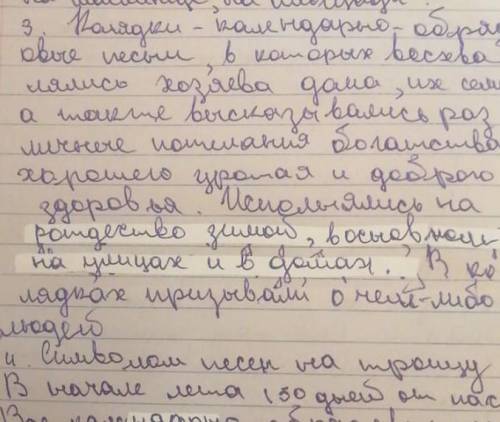 на площади.
3. Колядки - календарно-обряд
овые песни, в которых восхва
лялись хозяева дома, их сем
а также высказывались раз
личные пожелания богатства
хорошего урожая и доброго
здоровья. Исполнялись на
рождество зимой, в основном
на улицах и в домах. В ко
лядках призывали о чем-либо
людей
4. Символом песен на троицу
В начале лета (50 дней от пас